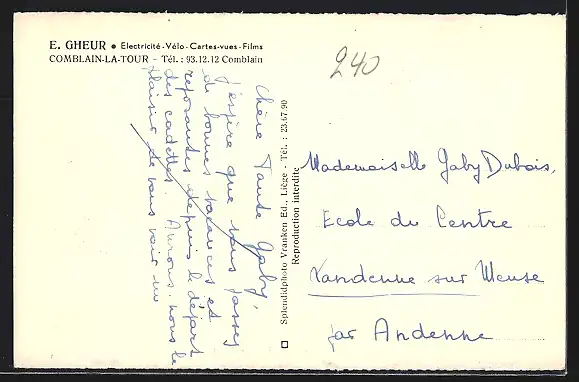 E. GHEUR • Electricité - Vélo - Cartes-vues - Films
COMBLAIN-LA-TOUR - Tél. : 93.12.12 Comblain
240
Chère Tante Gaby,
J'espère que vous passez
de bonnes vacances et
reposantes depuis le départ
des cadettes. Aurons-nous le
plaisir de vous voir un
Splendidphoto Vranken Ed., Liège - Tél. : 23.67.90
Reproduction interdite
Mademoiselle Gaby Dubois,
Ecole du Centre
Vandenne sur Meuse
par Andenne